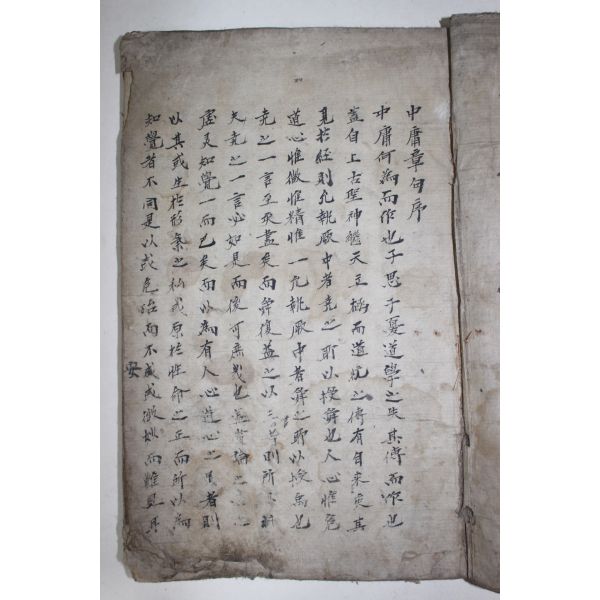 中庸章句序
中庸何為而作也子思子憂道學之失其傳而作也
蓋自上古聖神繼天立極而道統之傳有自來矣其
見於經則允執厥中者堯之所以授舜也人心惟危
道心惟微惟精惟一允執厥中者舜之所以授禹也
堯之一言至矣盡矣而舜復益之以三言則所以
夫堯之一言必如是而後可庶幾也蓋嘗論之心
虛灵知覺一而已矣而以為有人心道心之異者則
以其或生於形氣之私或原於性命之正而所以為
知覺者不同是以或危殆而不安或微妙而難見耳
安